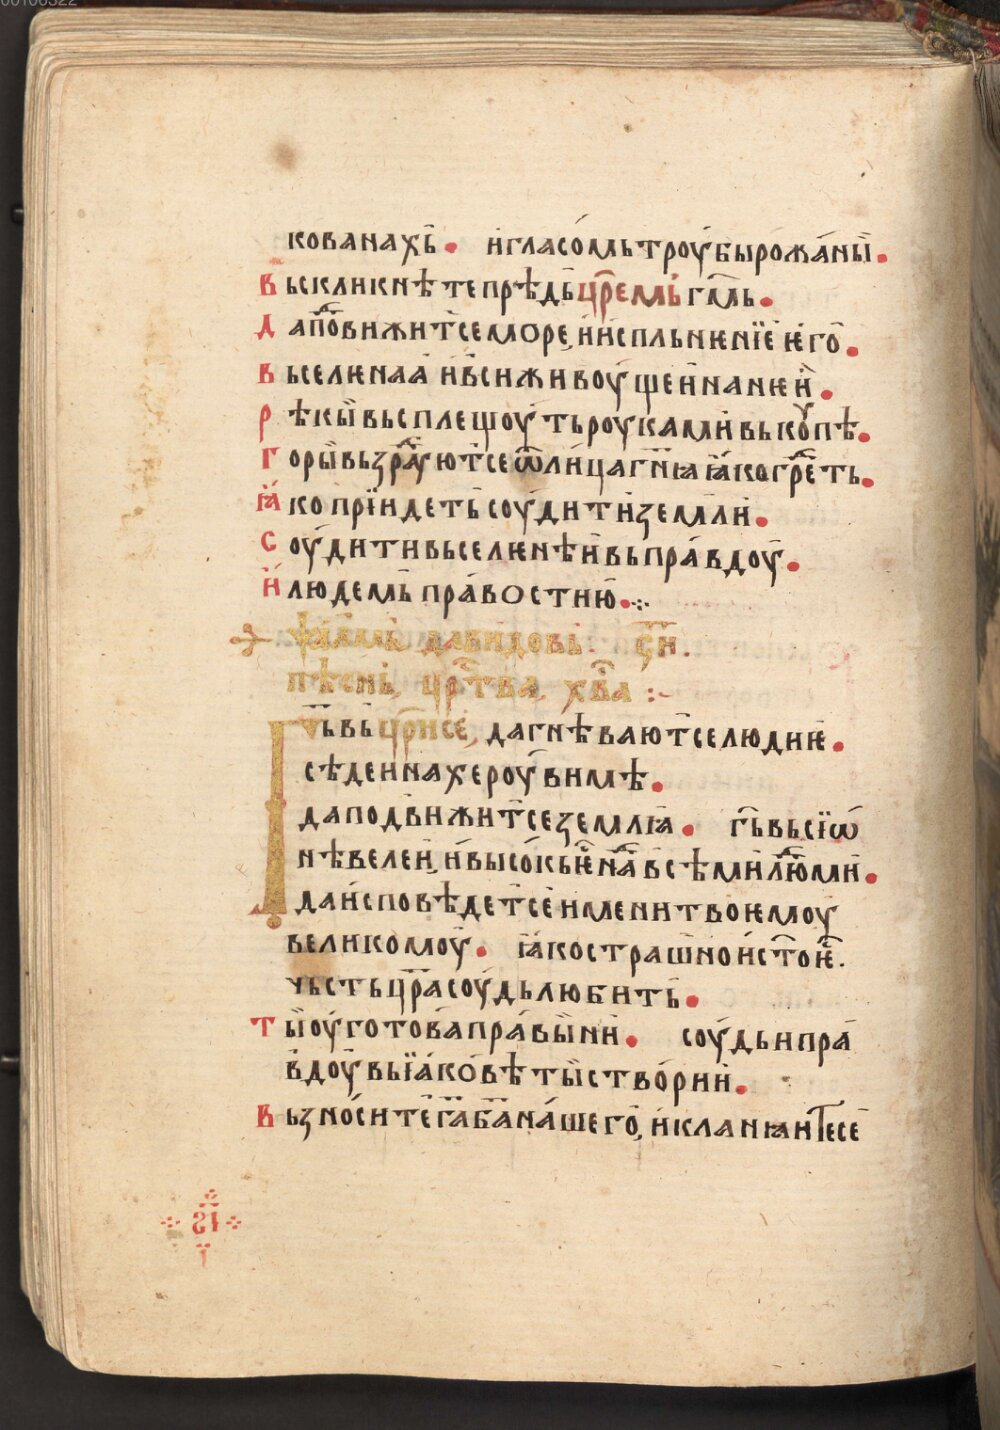 кованахь • и҆гласо́мьтроу́бырожа́ны •
вьскликнѣтепрѣдьцр҃емьг҃мь •
дапо́ⷣвижитсеморе, и҆испльнѥнїеѥго •
вьселѥнаа и҆вьсиживоу́щеинанѥи •
рѣкывьсплещоу́тьроукамивькꙋпѣ •
горывьзраⷣꙋютсеѿлицаг҃нꙗꙗ҆когреⷣть •
ꙗ҆коприидетьсоу́дитиземли •
соу́дитивьселѥнѣи҆вьпра́вдоу •
и҆людемьпра́востию •
ѱалмьдавидовь. ч҃и.
пѣснь, црⷭ҇тва, х҃ва :~
Г҃ьвьцр҃исе, дагнѣваютселюдиѥ •
сѣдеинахероу́вимѣ •
даподвижитсеземлꙗ • г҃ьвьсїѡ
нѣвелеи, и҆высо́кьѥⷭ҇наⷣвсѣмилюⷣми •
даи҆сповѣдетсеи҆менитвоѥмоу
великомоу • ꙗ҆кострашнои҆ст҃оѥⷭ҇.
чьстьцр҃асоу́дьлюбить •
тыоу҆готовапра́выни • соу́дьипра
вдоу́вьїа҆ко́вѣтыство́рии •
вьзно́ситег҃аб҃ана́шего, и҆кланꙗитесе